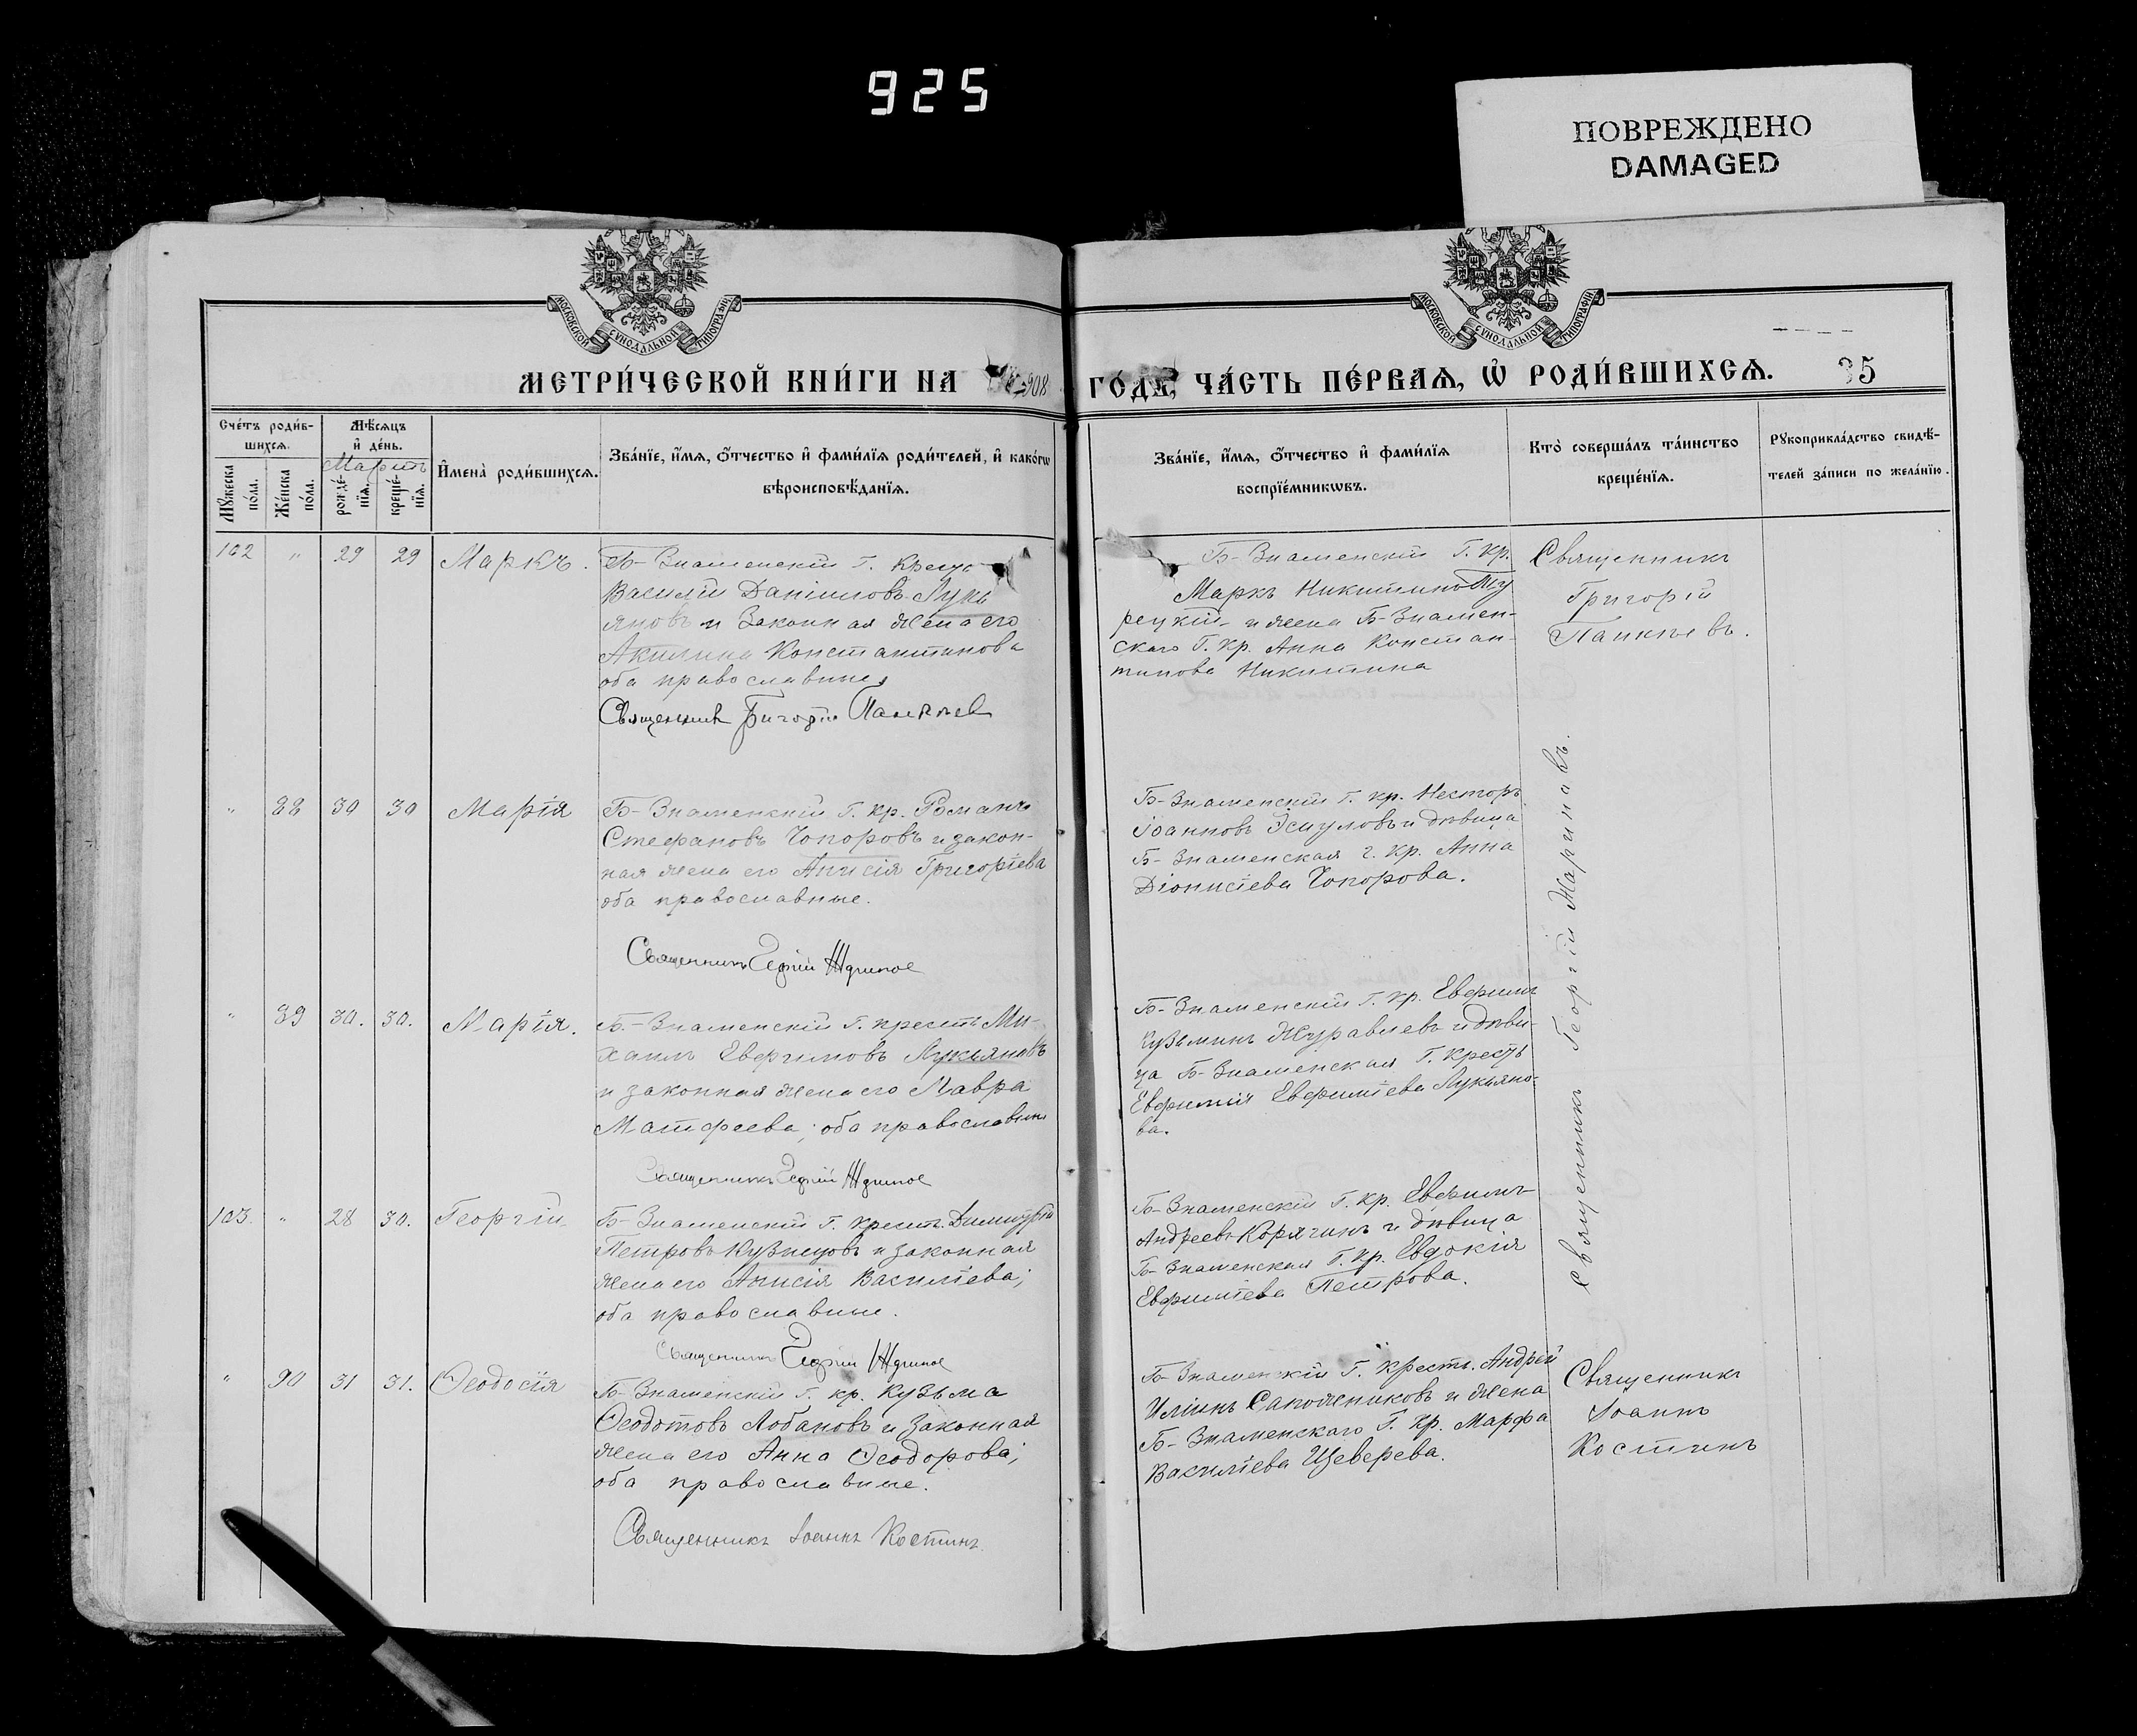 925
ПОВРЕЖДЕНО
DAMAGED
МОСКОВСКОЙ СУНОДАЛЬНОЙ ТИПОГРАФІИ
МОСКОВСКОЙ СУНОДАЛЬНОЙ ТИПОГРАФІИ
МЕТРИ́ЧЕСКОЙ КНИ́ГИ НА 1908 ГО́ДЪ, ЧА́СТЬ ПЕ́РВАѦ, Ѡ҆ РОДИ́ВШИХСѦ. 35
Сче́тъ роди́в-
шихсѧ.
Мꙋ́жеска по́ла.
Же́нска по́ла.
Мѣ́сѧцъ
и҆ де́нь.
Мартъ
рожде́-
нїѧ.
креще́-
нїѧ.
И҆мена̀ роди́вшихсѧ.
Зва́нїе, и҆́мѧ, ѻ҆́тчество и҆ фами́лїѧ роди́телей, и҆ како́гѡ
вѣроисповѣ́данїѧ.
Зва́нїе, и҆́мѧ, ѻ҆́тчество и҆ фами́лїѧ
воспрїе́мникѡвъ.
Кто̀ соверша́лъ та́инство
креще́нїѧ.
Рꙋкоприкла́дство свидѣ́-
телей за́писи по жела́нїю.
102 " 29 29 Маркъ.
Б-Знаменскій Г. Крест
Василій Даніиловъ Лукь
яновъ и Законная жена его
Акилина Константинова
оба православные
Священник Григорій Панкеев
Б-Знаменскій Г. Кр.
Маркъ Никитинъ
рецкій и жена Б-Знамен-
скаго Г. Кр. Анна Констан-
тинова Никитина
Священникъ
Григорій
Панкѣевъ.
" 88 30 30 Марія
Б-Знаменскій Г. кр. Романъ
Стефановъ Чопоровъ и закон-
ная жена его Анисія Григоріева
оба православные.
Священникъ Георгій
Б-Знаменскій Г. кр. Несторъ
Іоанновъ и дѣвица
Б-Знаменская г. кр. Анна
Діонисіева Чопорова.
" 89 30. 30. Марія.
Б.-Знаменскій Г. крестъ Ми-
хаилъ Евфимовъ Лукьяновъ
и законная жена его Мавра
Матфеева; оба православны
Священникъ Георгій
Б-Знаменскій Г. кр. Евфимъ
Кузьминъ Журавлевъ и дѣви-
ца Б-Знаменская Г. Крестъ
Евфимія Евфиміева Лукьяно-
ва.
Священникъ Георгій
103. " 28 30. Георгій.
Б-Знаменскій Г. крест. Димитрій
Петровъ Кузнецовъ и законная
жена его Анисія Василіева;
оба православные.
Священникъ Георгій
Б-Знаменскій Г. кр. Евфимъ
Андреевъ Корягинъ и дѣвица
Б-Знаменская Г. Кр. Евдокія
Евфиміева Петрова.
" 90 31 31. Ѳеодосія
Б-Знаменскій Г. кр. Кузьма
Ѳеодотовъ Лобановъ и Законная
жена его Анна Ѳеодорова;
оба православные.
Священникъ Іоаннъ Костинъ.
Б-Знаменскій Г. крестъ. Андрей
Иліинъ Сапожниковъ и жена
Б-Знаменскаго Г. Кр. Марфа
Василіева Щеверева.
Священникъ
Іоаннъ
Костинъ